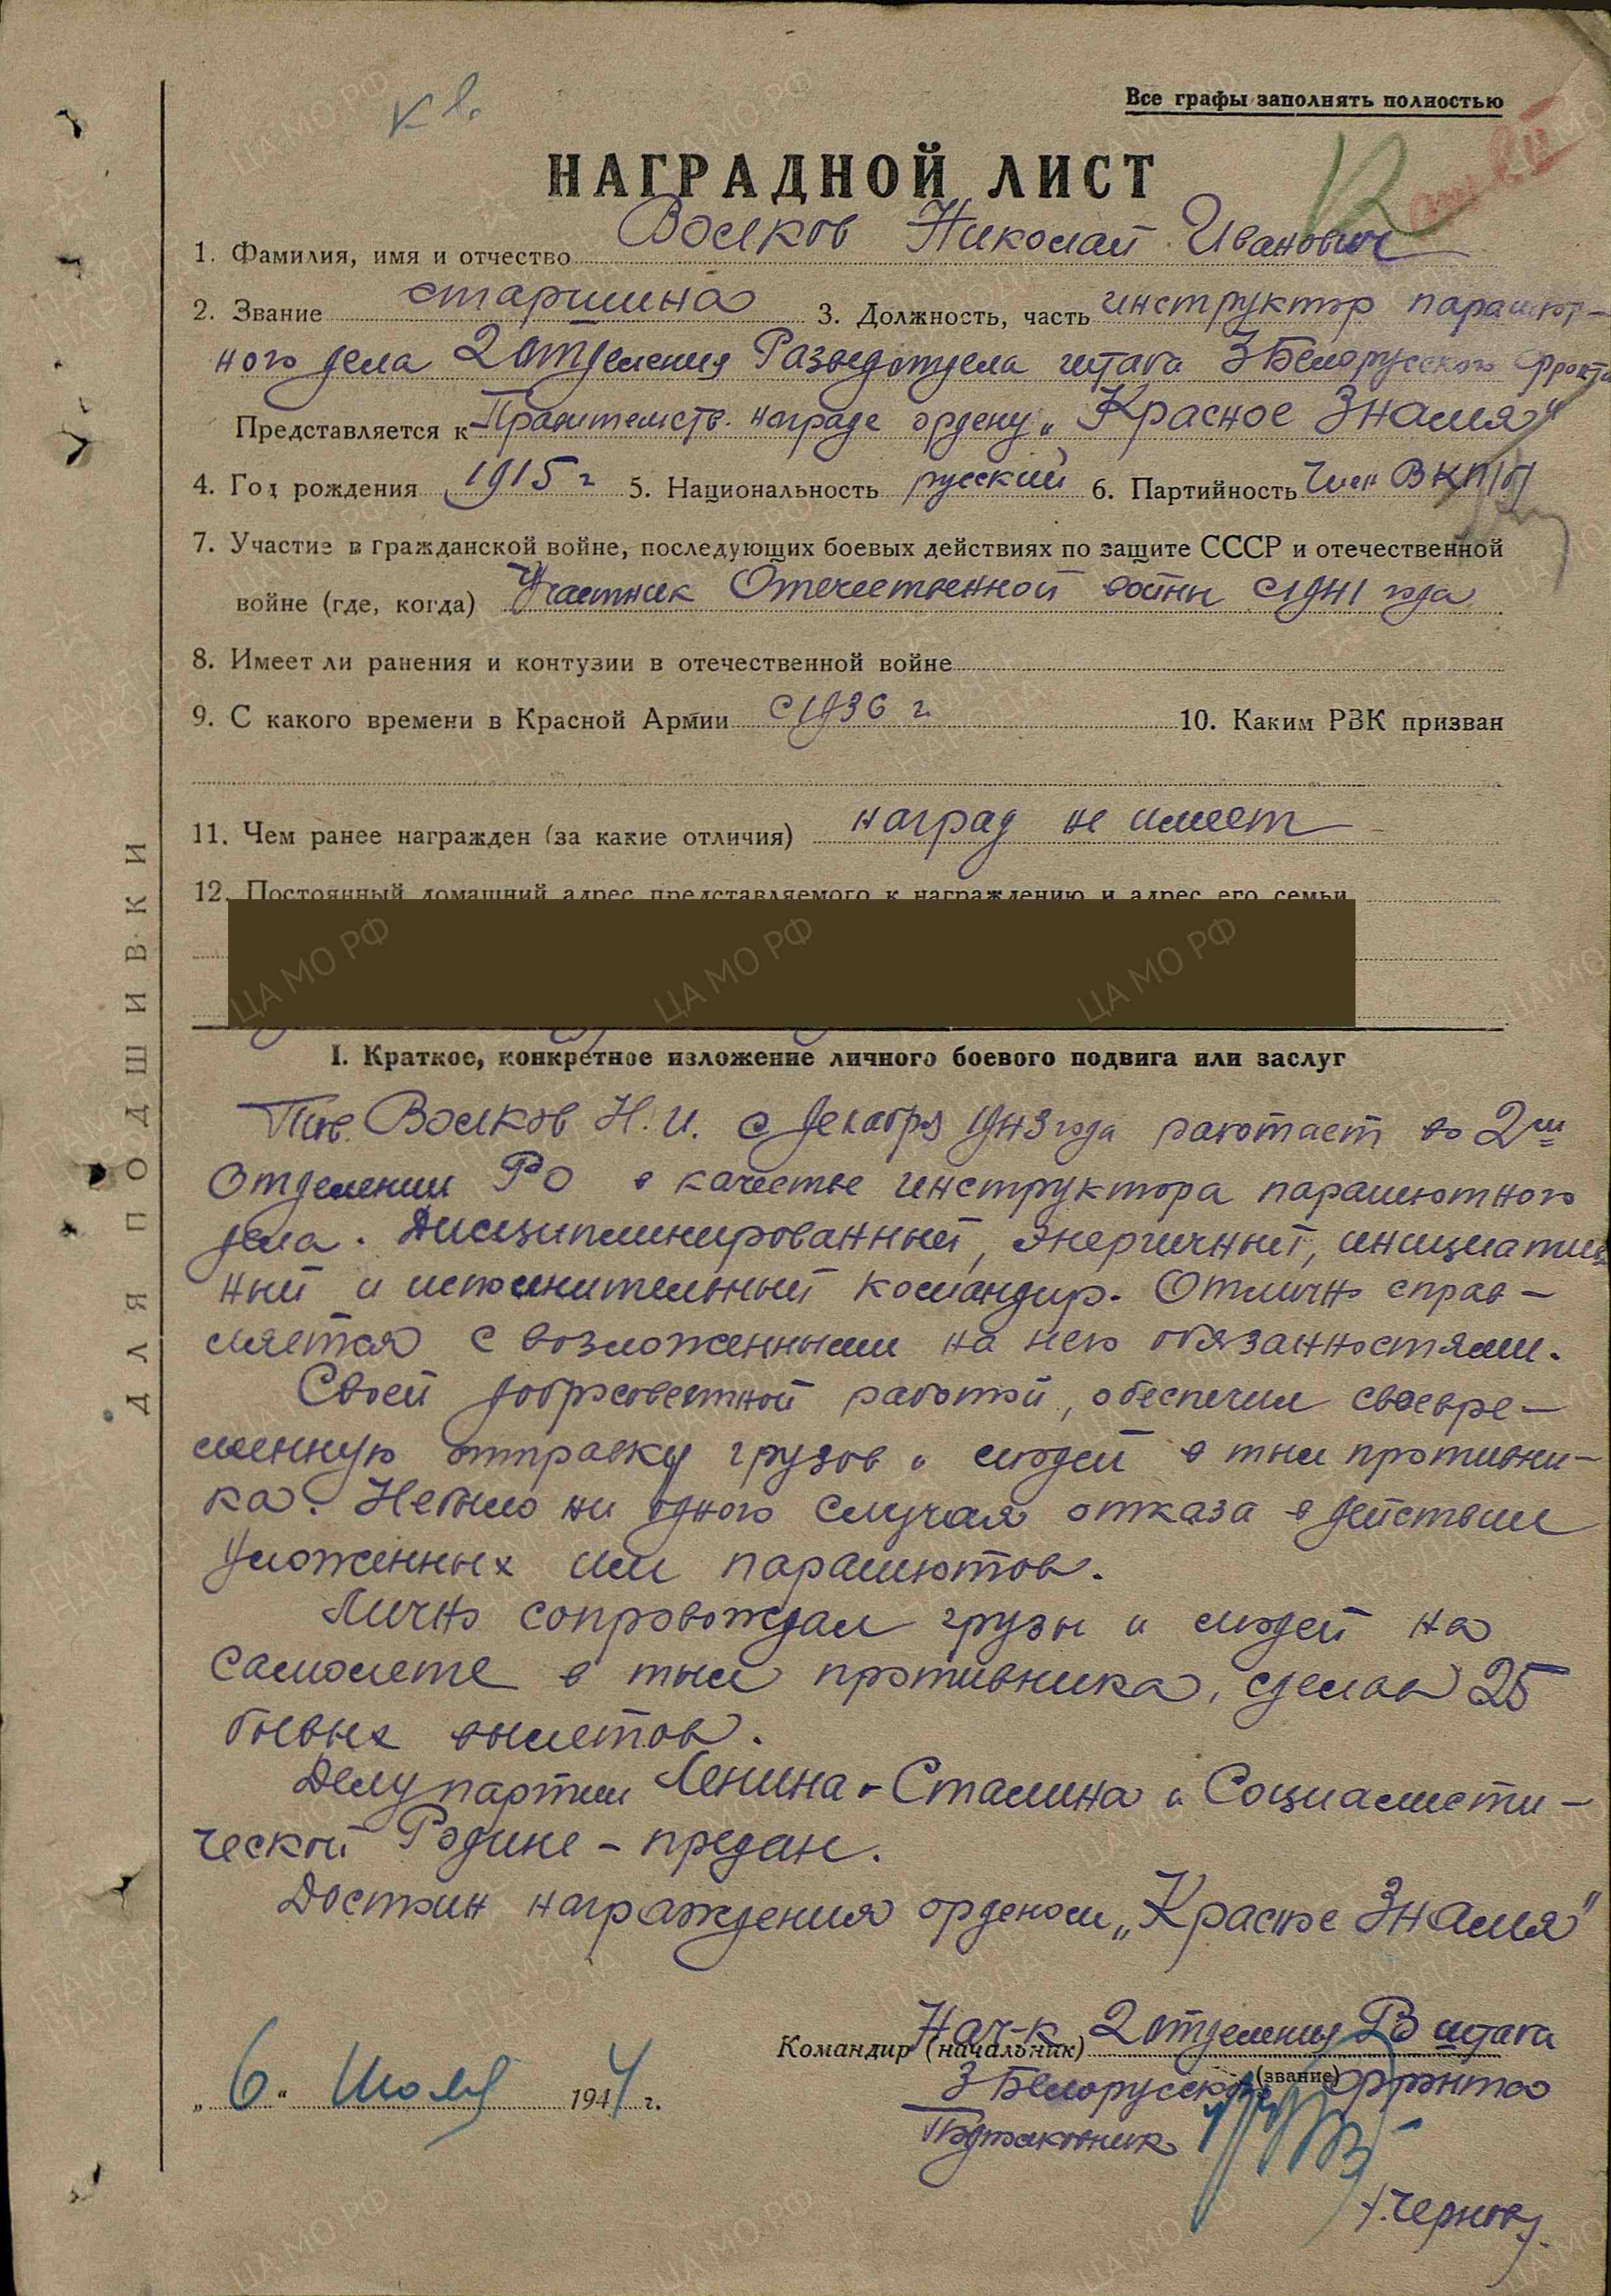 к л.
Все графы заполнять полностью
НАГРАДНОЙ ЛИСТ
1. Фамилия, имя и отчество Волков Николай Иванович
2. Звание старшина 3. Должность, часть инструктор парашют-
ного дела 2 отделения Разведотдела штаба 3 Белорусского фронта
Представляется к Правительств. награде ордену „Красное Знамя"
4. Год рождения 1915 г 5. Национальность русский 6. Партийность Член ВКП/б/
7. Участие в гражданской войне, последующих боевых действиях по защите СССР и отечественной
войне (где, когда) Участник Отечественной войны с 1941 года
8. Имеет ли ранения и контузии в отечественной войне
9. С какого времени в Красной Армии с 1936 г. 10. Каким РВК призван
11. Чем ранее награжден (за какие отличия) наград не имеет
12. Постоянный домашний адрес представляемого к награждению и адрес его семьи
I. Краткое, конкретное изложение личного боевого подвига или заслуг
Тов. Волков Н.И. с декабря 1943 года работает во 2м
Отделении РО в качестве инструктора парашютного
дела. Дисциплинированный, энергичный, инициатив
ный и исполнительный командир. Отлично справ-
ляется с возложенными на него обязанностями.
Своей добросовестной работой, обеспечил своевре-
менную отправку грузов и людей в тыл противни-
ка. Небыло ни одного случая отказа в действии
уложенных им парашютов.
Лично сопровождал грузы и людей на
самолете в тыл противника, сделав 25
боевых вылетов.
Делу партии Ленина-Сталина и Социалисти-
ческой Родине - предан.
Достоин награждения орденом „Красное Знамя"
Командир (начальник) Нач-к 2 отделения РО штаба
(звание)
3 Белорусского фронта
„6" Июля 1944 г.
Подполковник
/Чернов/.
ДЛЯ ПОДШИВКИ
ЦА МО РФ
ПАМЯТЬ НАРОДА